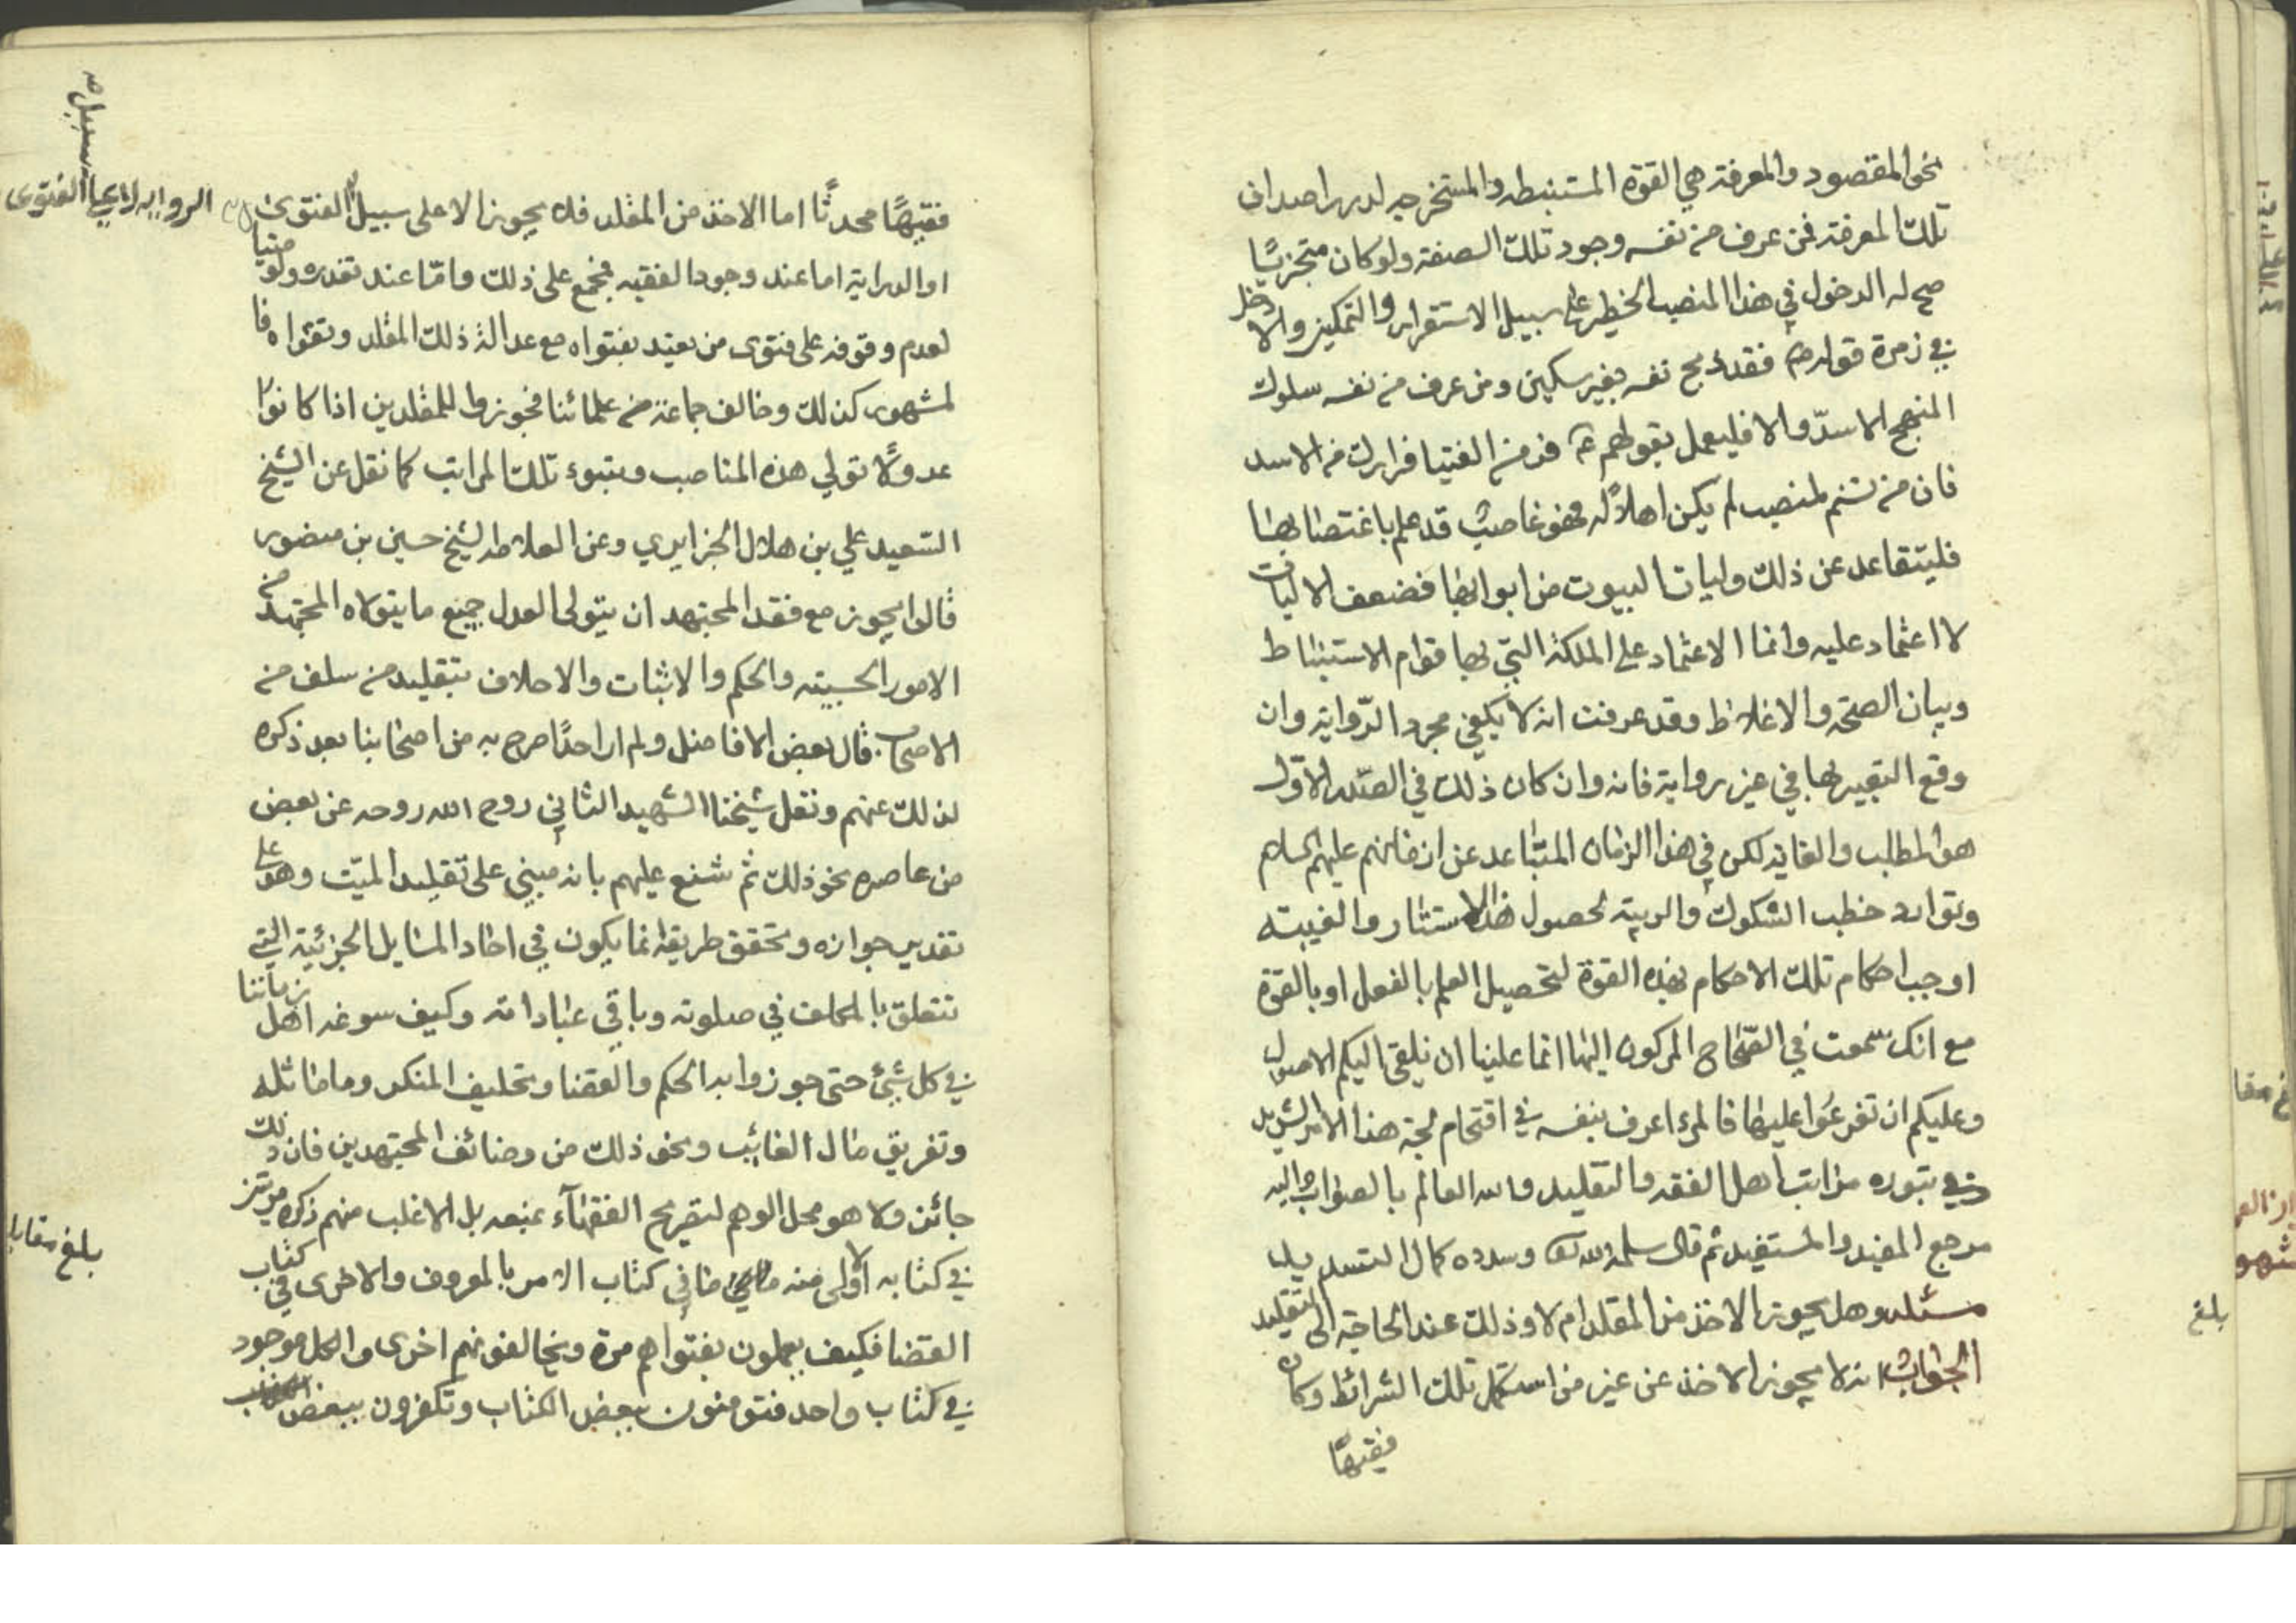 نحو المقصود والمعرفة هي القوة المستنبطه والمستخرجه لدرر اصداف
تلك المعرفة فمن عرف من نفسه وجود تلك الصفة ولو كان متجزيًا
صح له الدخول في هذا المنصب الخطير على سبيل الاستقرار والتمكين والا دخل
في زمرة قولهم فقد ذبح نفسه بغير سكين ومن عرف من نفسه سلوك
المنهج الاسدّ والا فليعمل بقولهم ع فر من الفتيا فرارك من الاسد
فان من تسنم لمنصب لم يكن اهلاً له فهو غاصب قد علم باغتصابها
فليتقاعد عن ذلك وليات البيوت من ابوابها فضعف الاليات
لا اعتماد عليه وانما الاعتماد على الملكة التي بها قوام الاستنباط
وبيان الصحة والاغلاط وقد عرفت انه لا يكفي مجرد الرّواية وان
وقع التعبير بها في غير رواية فانه وان كان ذلك في الصّدر الاوّل
هو المطلب والغاية لكن في هذا الزمان المتباعد عن ازمانهم عليهم السلام
وتوارد خطب الشكوك والريبة لحصول هذا الاستتار والغيبته
اوجب احكام تلك الاحكام بهذه القوة لتحصيل العلم بالفعل او بالقوة
مع انك سمعت في الصّحاح المركون اليها انما علينا ان نلقي اليكم الاصول
وعليكم ان تفرعوا عليها فالمرء اعرف بنفسه في اقتحام لجة هذا الامر الشديد
وفي تبوره مراتب اهل الفقه والتقليد والله العالم بالصواب واليه
مرجع المفيد والمستفيد ثم قال سلمه الله تعالى وسدده كمال التسديد
مسئلة وهل يجوز الاخذ من المقلد ام لا وذلك عند الحاجة الى التقليد
الجواب انه لا يجوز الاخذ عن غير من استكمل تلك الشرائط وكان
فقيهًا
بلغ
فقيهًا محدثًا اما الاخذ من المقلد فلا يجوز الا على سبيل الفتوى
الرواية لا على سبيل الفتوى صح
او الدراية اما عند وجود الفقيه فمجمع على ذلك وامّا عند تعذره ولو منا
لعدم وقوفه على فتوى من يعتد بفتواه مع عدالة ذلك المقلد وتقواه فا
لمشهور كذلك وخالف جماعة من علمائنا فجوزوا للمقلدين اذا كانوا
عدولًا تولي هذه المناصب وتبوء تلك المراتب كما نقل عن الشيخ
السّعيد علي بن هلال الجزايري وعن العلامه الشيخ حسين بن منصور
قالوا يجوز مع فقد المجتهد ان يتولى العدل جميع ما يتولاه المجتهد من
الامور الحسبيته والحكم والاثبات والاحلاف بتقليد من سلف من
الاصحاب قال بعض الافاضل ولم ار احدًا صرح به من اصحابنا بعد ذكره
لذلك عنهم ونقل شيخنا الشهيد الثاني روح الله روحه عن بعض
من عاصره نحو ذلك ثم شنع عليهم بانه مبني على تقليد الميّت وهو على
تقدير جوازه وتحقق طريقه انما يكون في احاد المسايل الجزئية التي
تتعلق بالمكلف في صلوته وباقي عباداته وكيف سوغه اهل زماننا
في كل شيئ حتى جوزوا به الحكم والقضا وتحليف المنكر وما ماثله
وتفريق مال الغائب ونحو ذلك من وضائف المجتهدين فان ذلك
جائز ولا هو محل الوهم لتصريح الفقهآء بمنعه بل الاغلب منهم ذكره مرتين
في كتابه الاولى منه ما في كتاب الامر بالمعروف والاخرى في كتاب
القضا فكيف يعملون بفتواهم مرة ويخالفونهم اخرى والكل موجود
في كتاب واحد فتومنون ببعض الكتاب وتكفرون ببعض
بلغ مقابله